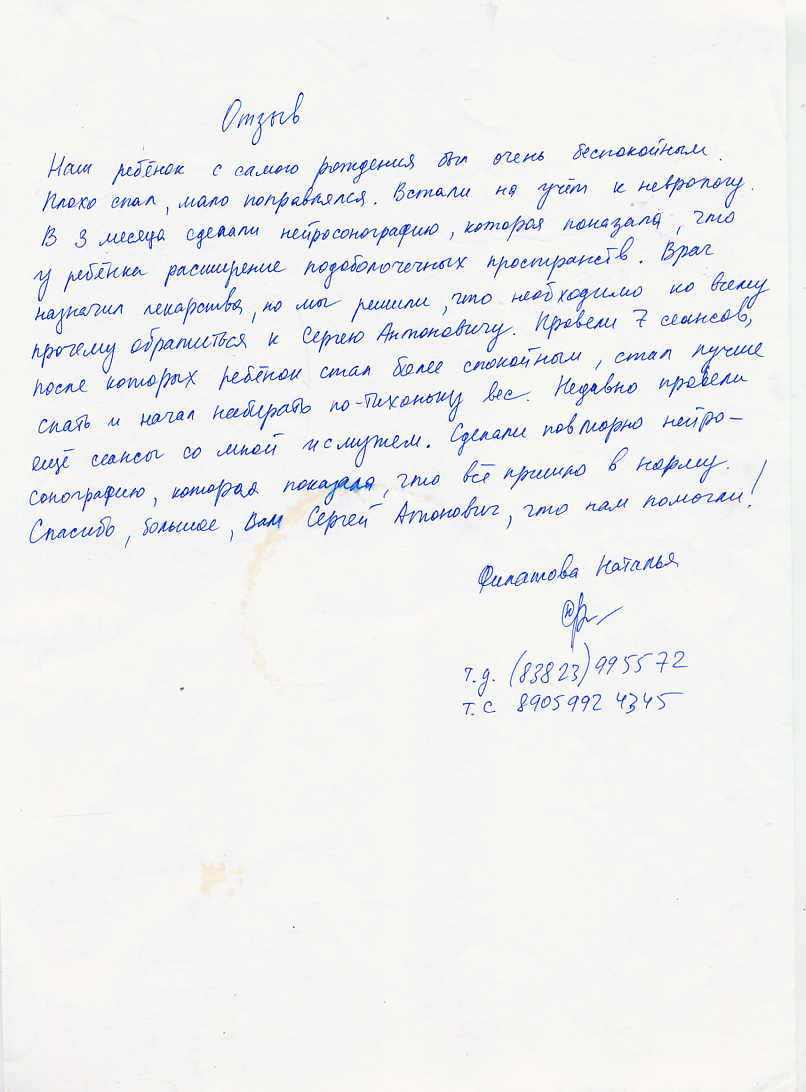 Отзыв
Наш ребёнок с самого рождения был очень беспокойным.
Плохо спал, мало поправлялся. Встали на учёт к неврологу.
В 3 месяца сделали нейросонографию, которая показала, что
у ребёнка расширение подоболочечных пространств. Врач
назначил лекарства, но мы решили, что необходимо ко всему
прочему обратиться к Сергею Антоновичу. Провели 7 сеансов,
после которых ребёнок стал более спокойным, стал лучше
спать и начал набирать по-тихоньку вес. Недавно провели
ещё сеансы со мной и с мужем. Сделали повторно нейро-
сонографию, которая показала, что всё пришло в норму.
Спасибо, большое, Вам Сергей Антонович, что нам помогли!
Филатова Наталья
т.д. (83823) 995572
т.с 8905992 4345